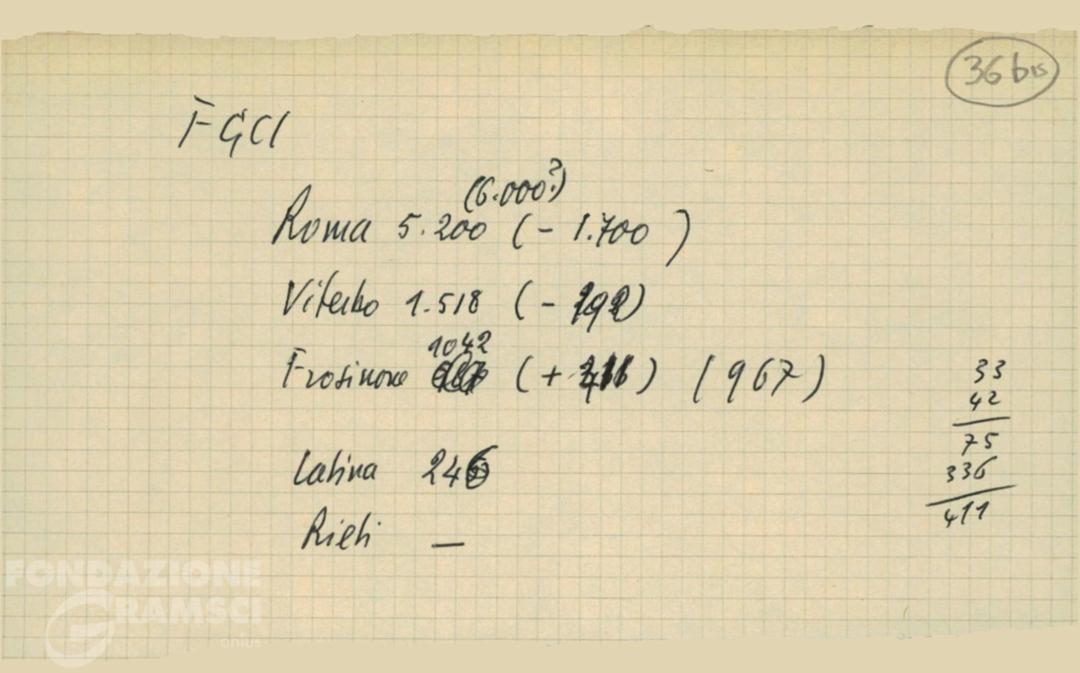 36 bis
FGCI
(6.000?)
Roma 5.200 (- 1.700)
Viterbo 1.518 (- )
1042
Frosinone (+ 411) (967)
Latina 246
Rieti —
33
42
75
336
411
FONDAZIONE
GRAMSCI
onlus